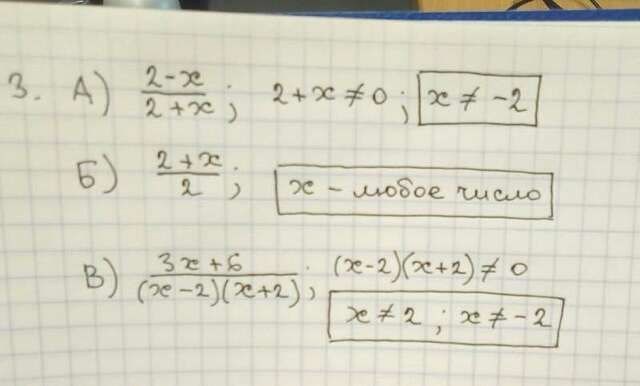 3. А) (2-x)/(2+x); 2+x≠0; x≠-2
Б) (2+x)/2; x - любое число
В) (3x+6)/((x-2)(x+2)); (x-2)(x+2)≠0
x≠2; x≠-2